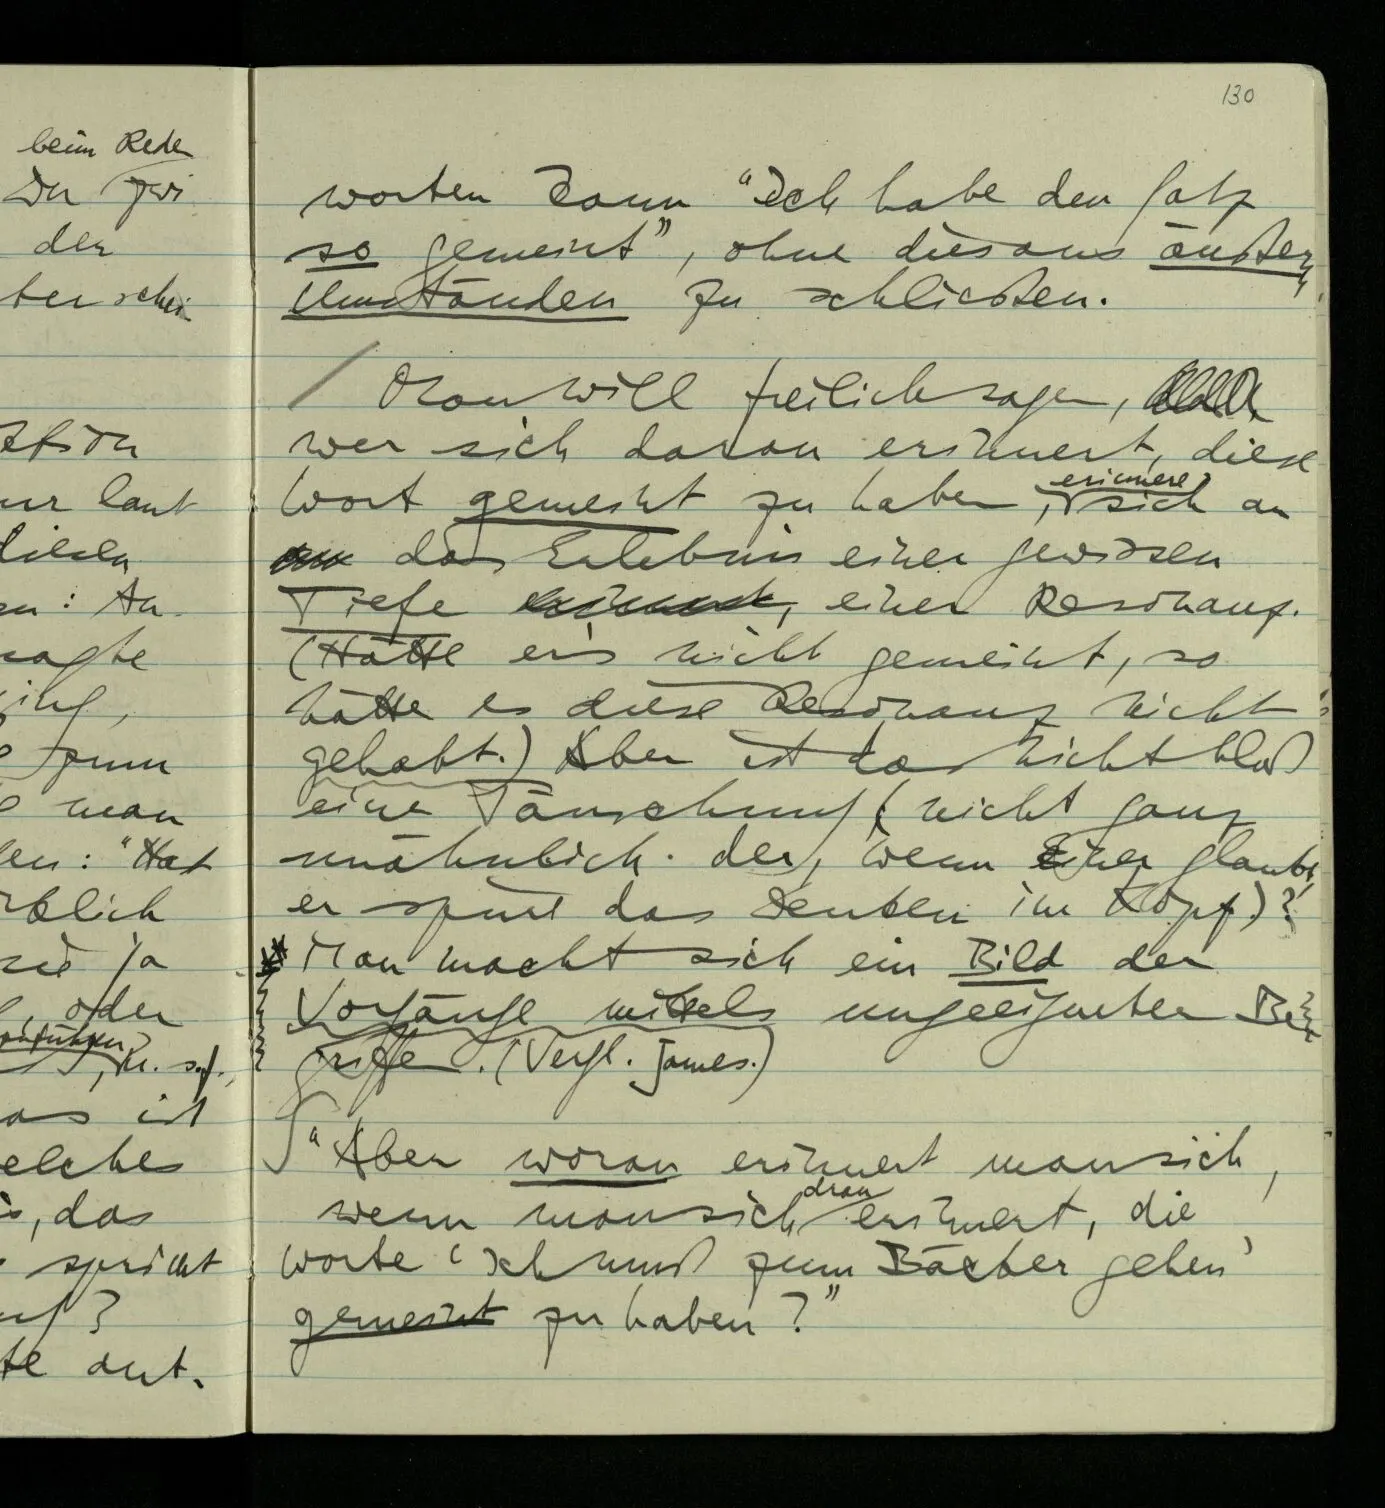 beim Rede
der
ter schei
ur laut
diesen
en: An-
sagte
ging,
zum
man
en: "Hat
rklich
sie ja
, oder
, u. s.f.,
as ist
elches
s, das
spricht
uf?
te ant-
130
worten kann "Ich habe den Satz
so gemeint", ohne dies aus äußern
Umständen zu schließen.
/ Man will freilich sagen,
wer sich daran erinnert, diese
erinnere
Wort gemeint zu haben, sich an
das Erlebnis einer gewissen
Tiefe, einer Resonanz.
(Hätte er's nicht gemeint, so
hätte es diese Resonanz nicht
gehabt.) Aber ist das nicht bloß
eine Täuschung (nicht ganz
unähnlich der, wenn Einer glaubt,
er spürt das Denken im Kopf)?
* Man macht sich ein Bild der
Vorgänge mittels ungeeigneter Be-
griffe. (Vergl. James.)
∫ "Aber woran erinnert man sich,
dran
wenn man sich erinnert, die
Worte 'Ich muß zum Bäcker gehen'
gemeint zu haben?"